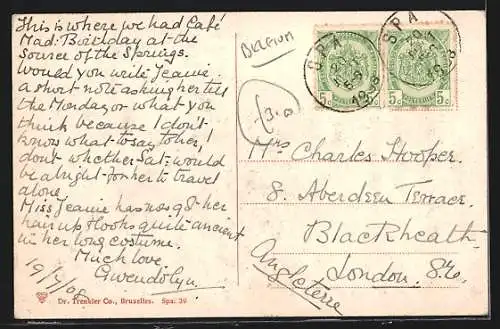 This is where we had Café
Mad: Birthday at the
Source of the Springs.
Would you write Jeanie
a short note asking her till
the Monday or what you
think because I don't
know what to say to her, I
dont whether Sat: would
be alright for her to travel
alone.
Miss Jeanie has now got her
hair up & looks quite ancient
in her long costume.
Much love
Gwendolyn.
19/7/08
Dr. Trenkler Co., Bruxelles. Spa. 39
BELGIUM
SPA
1908
5c 5c
SPA
1908
5c 5c
3.0
Mrs Charles Hooper.
8. Aberdeen Terrace.
Blackheath.
London. S.E.
Angleterre